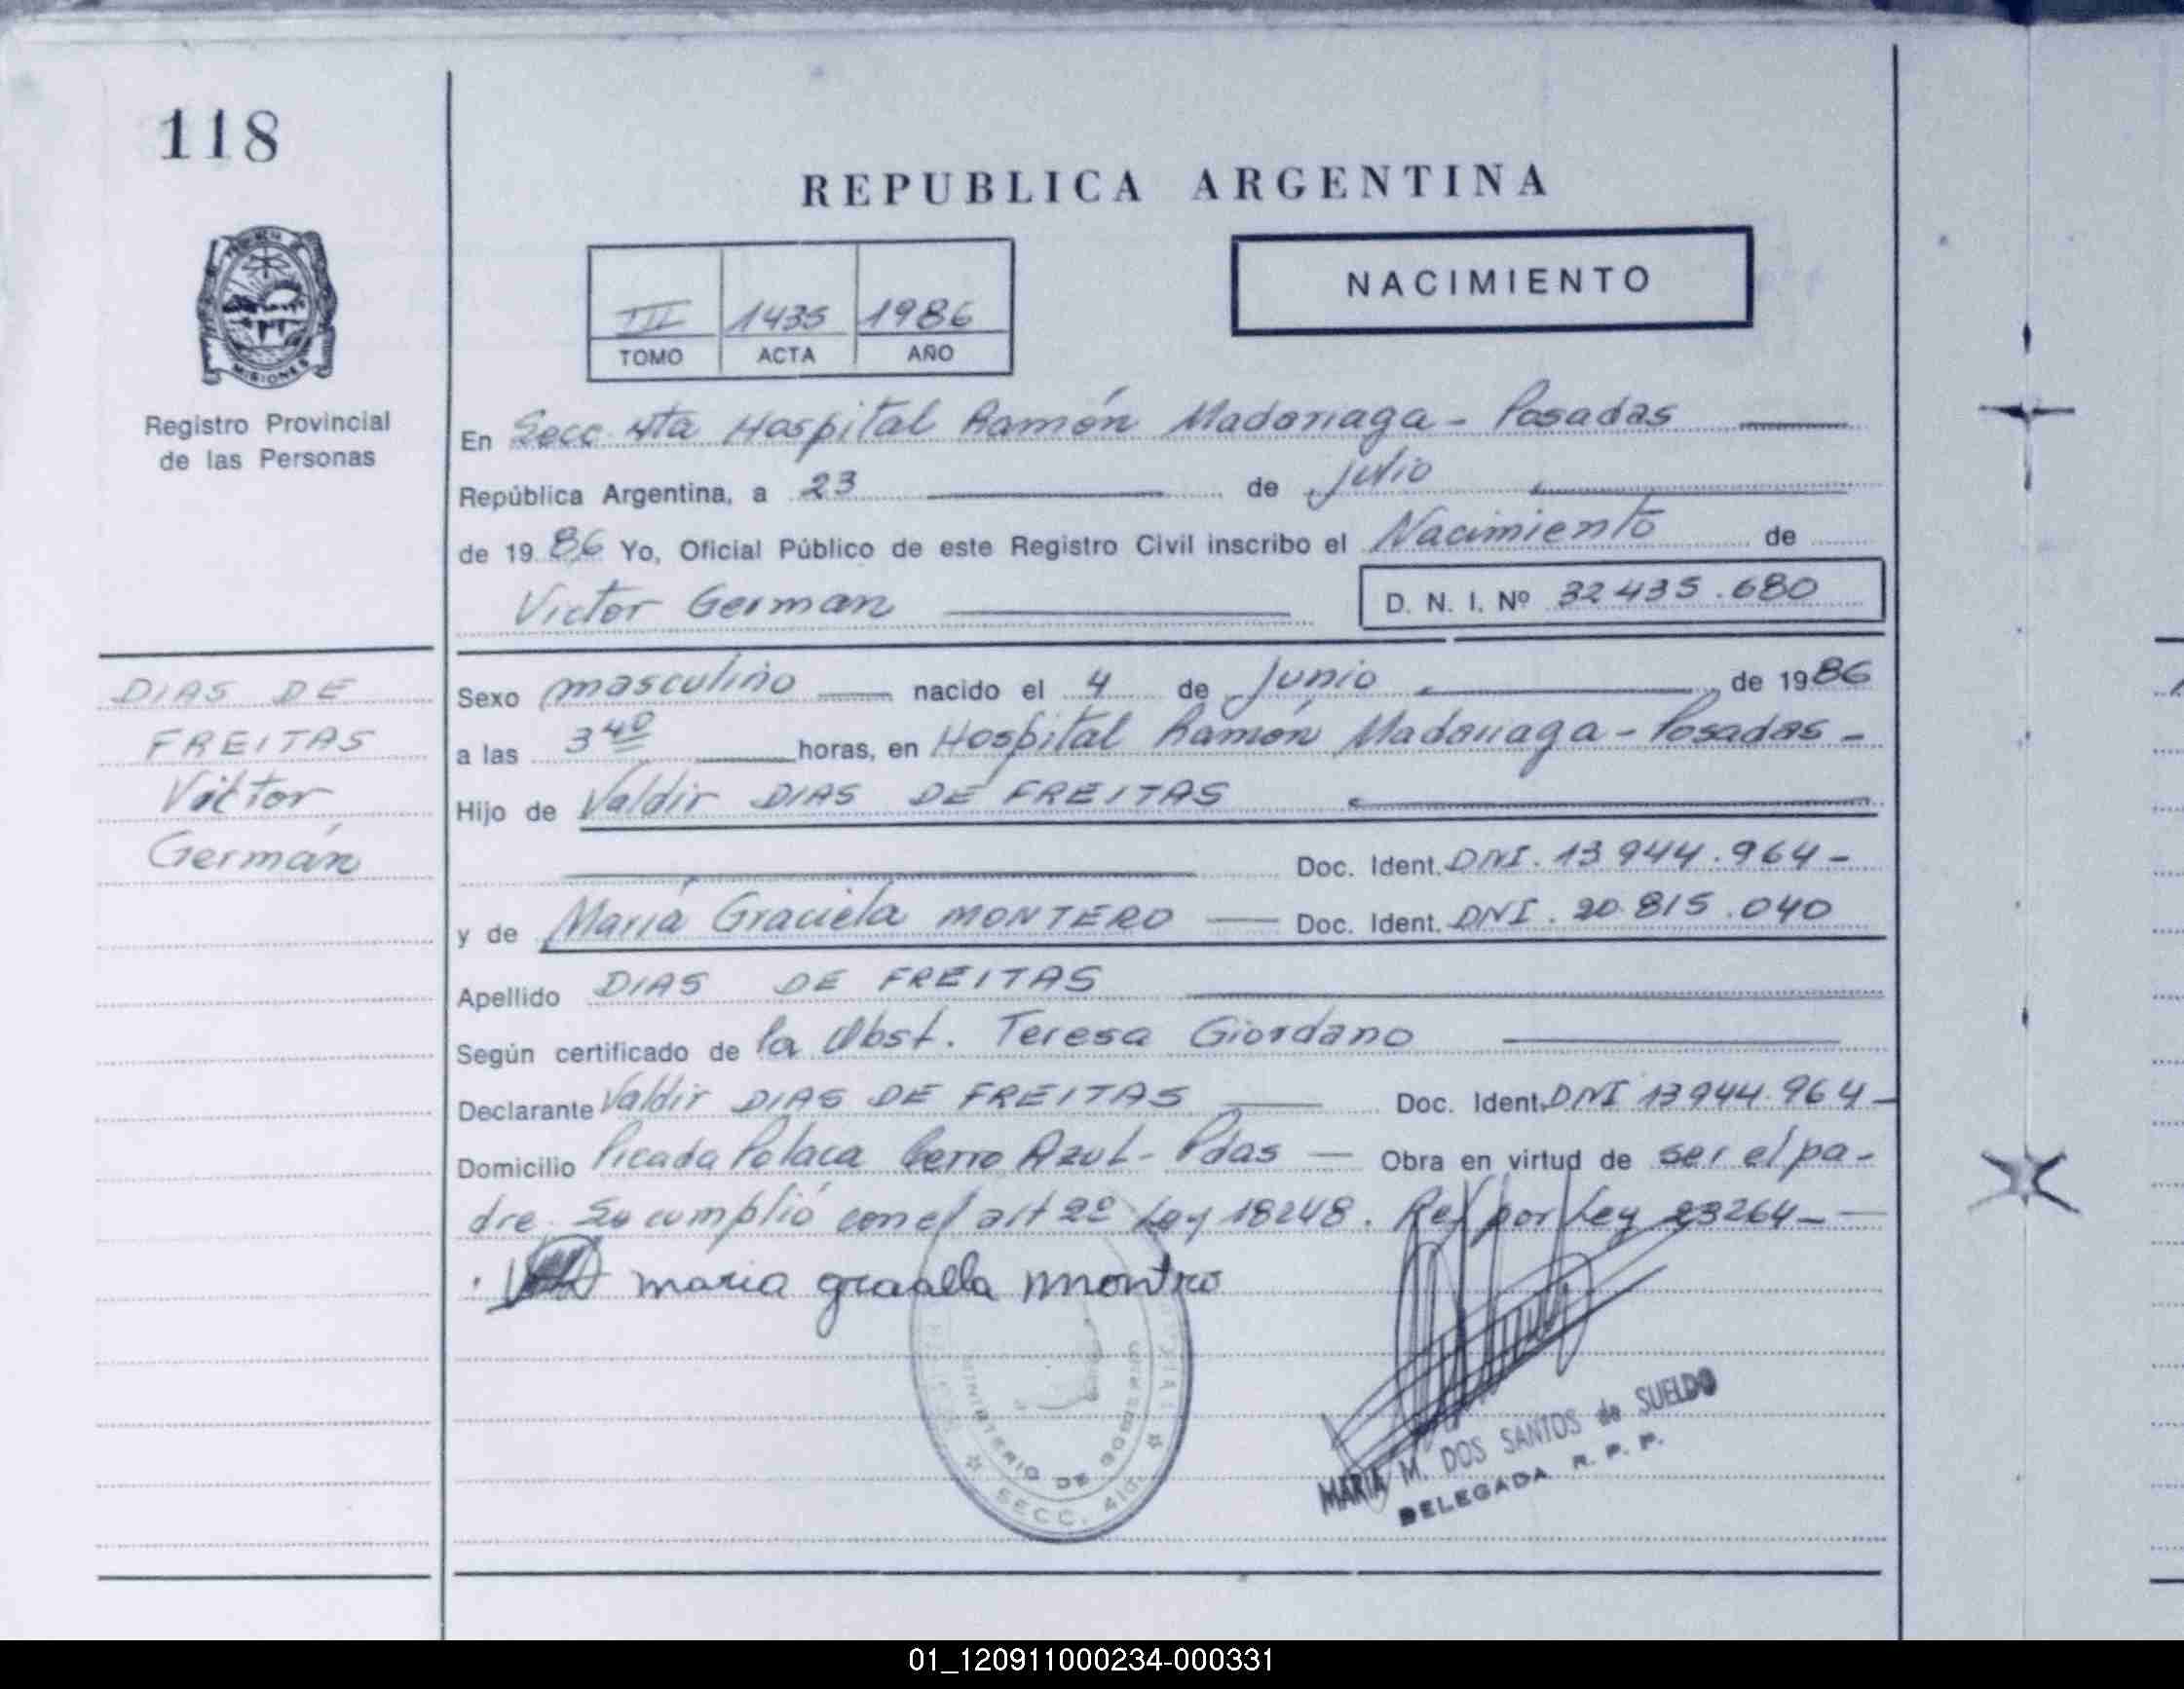 118
REPUBLICA ARGENTINA
NACIMIENTO
III 1435 1986
TOMO ACTA AÑO
PROVINCIA DE
MISIONES
Registro Provincial
de las Personas
En Secc. 4ta Hospital Ramón Madariaga - Posadas
República Argentina, a 23 de Julio
de 1986 Yo, Oficial Público de este Registro Civil inscribo el Nacimiento de
Victor German D. N. I. Nº 32 435.680
DIAS DE
FREITAS
Victor
Germán
Sexo masculino nacido el 4 de Junio de 1986
a las 3 40 horas, en Hospital Ramón Madariaga - Posadas -
Hijo de Valdir DIAS DE FREITAS
Doc. Ident. DNI. 13 944.964 -
y de María Graciela MONTERO Doc. Ident. DNI. 20 815.040
Apellido DIAS DE FREITAS
Según certificado de la Obst. Teresa Giordano
Declarante Valdir DIAS DE FREITAS Doc. Ident. DNI 13 944.964 -
Domicilio Picada Polaca Cerro Azul - Pdas - Obra en virtud de ser el pa-
dre. Se cumplió con el art 2º Ley 18248. Ref por Ley 23264 -
maria graciela montero
MINISTERIO DE GOBIERNO
SECC. 4ta.
MARIA M. DOS SANTOS de SUELDO
DELEGADA R. P. P.
01_120911000234-000331